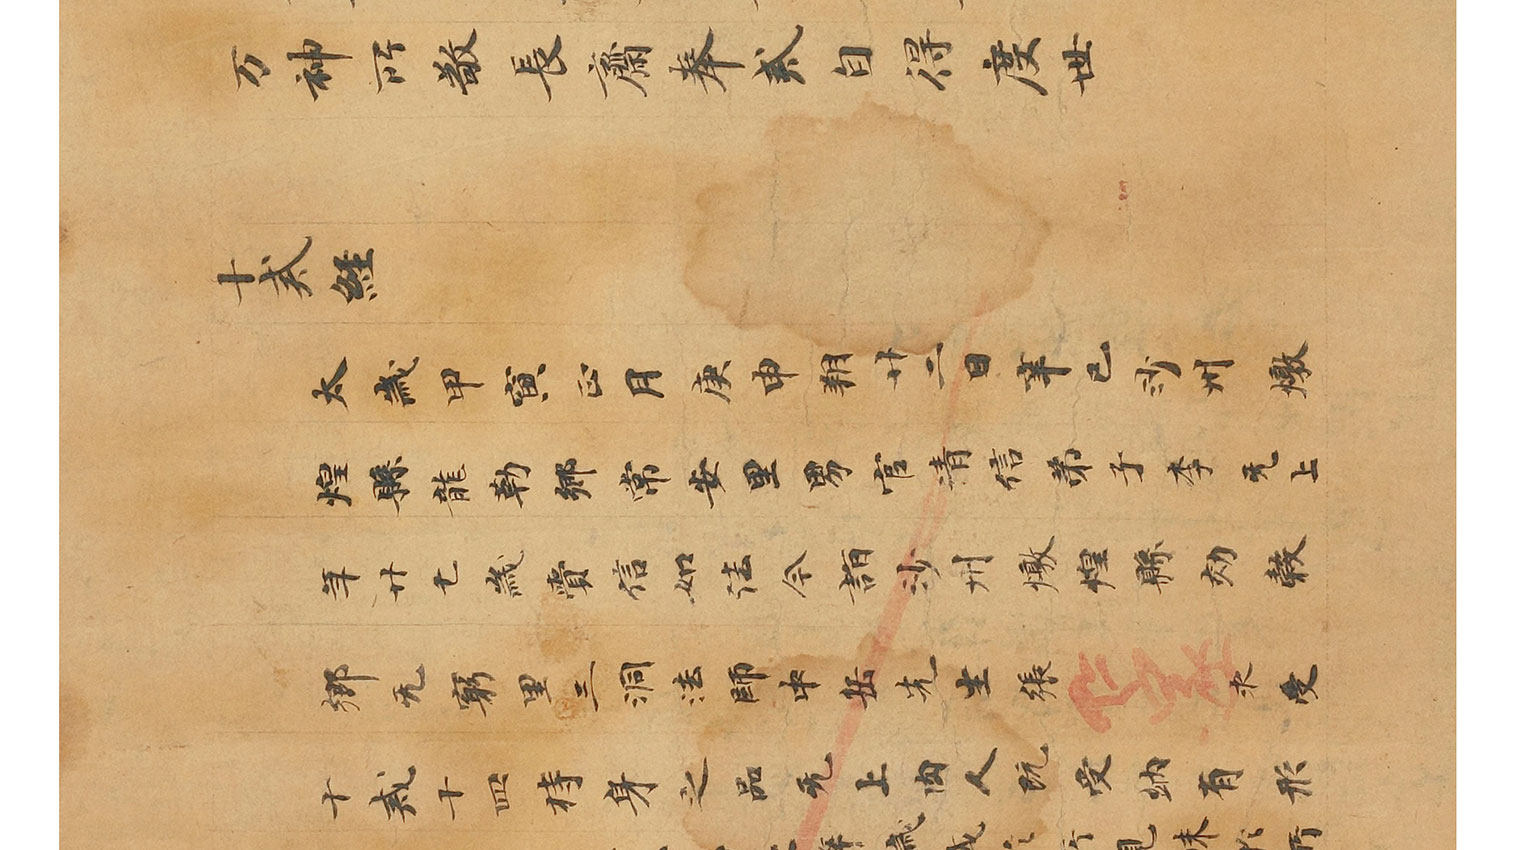 万神所敬長齋奉戒自得度世
十戒經
太歲甲寅正月庚申朔廿二日辛巳沙州燉
煌縣龍勒鄉常安里男官清信弟子李无上
年廿七歲賷信如法今詣沙州燉煌縣効穀
鄉无窮里三洞法師中岳先生張求受
十戒十四持身之品无上肉人既受納有形